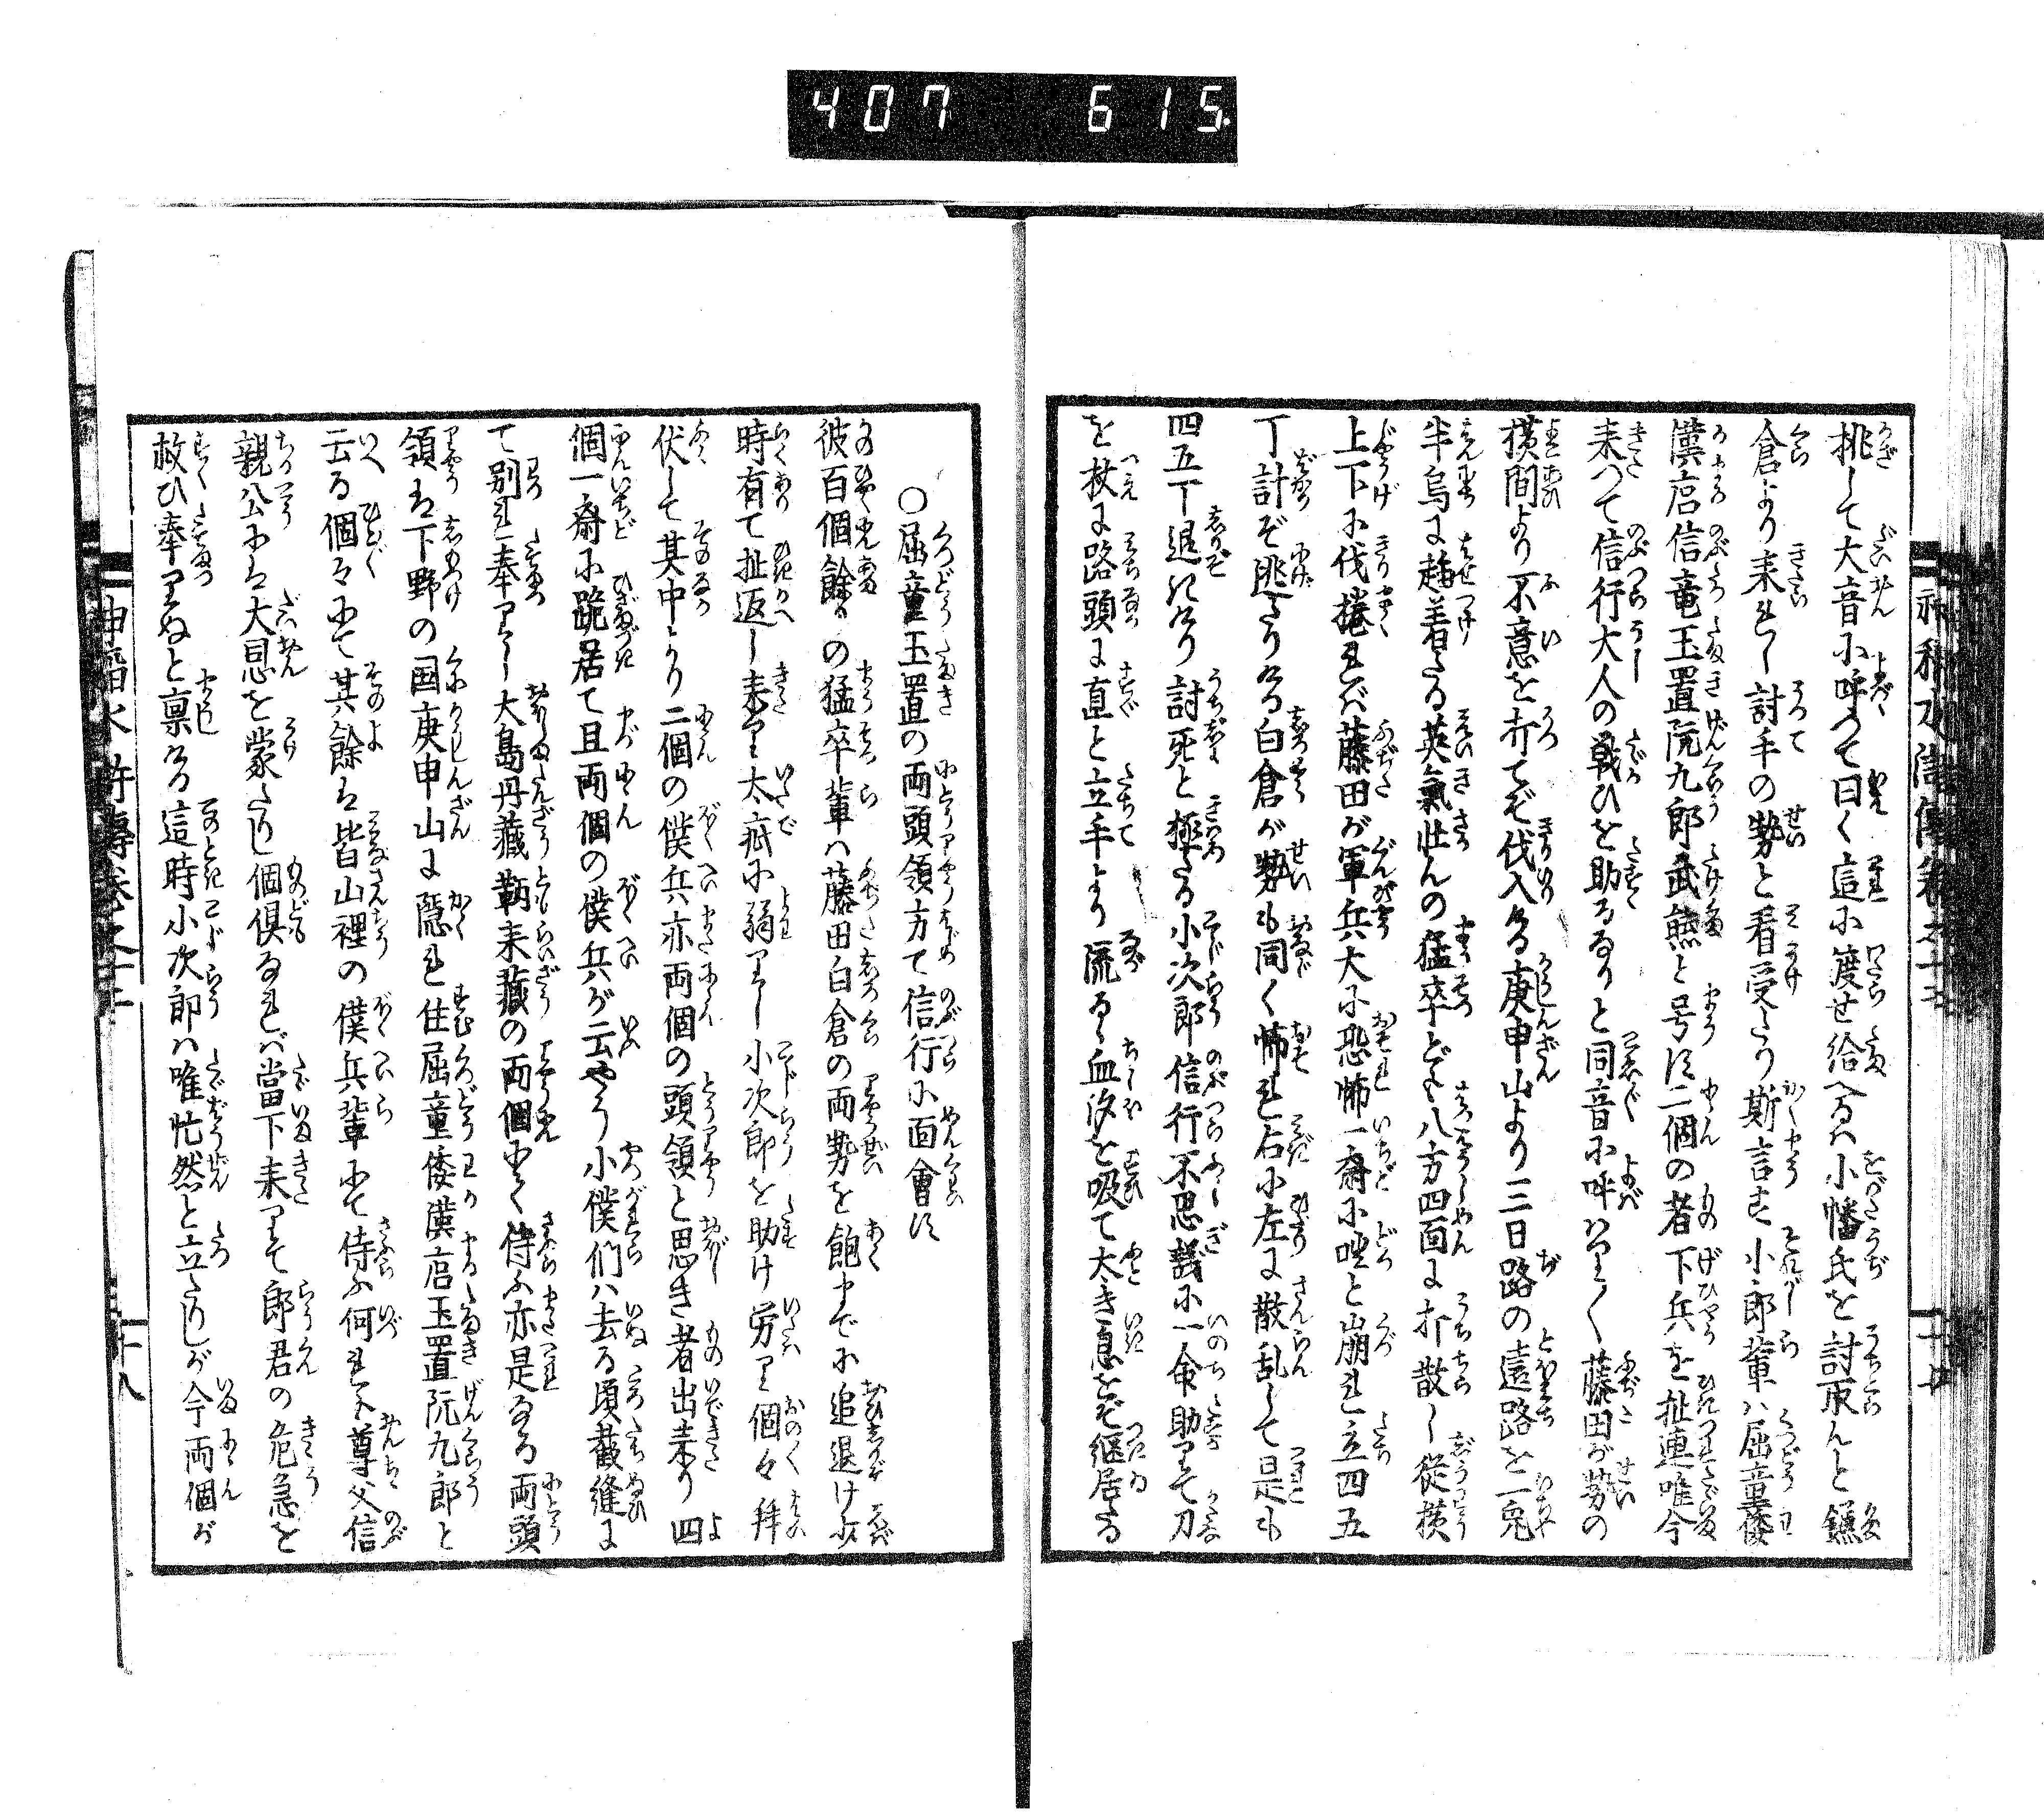 407 615
挑して大音に呼つて曰く這に渡せ給へるハ小幡氏を討取んと鎌
倉より来れし討手の勢と看受たり斯言す小郎輩ハ屈童倭
漢宕信竜玉置阮九郎武熊と号に二個の者下兵を扯連唯今
来つて信行大人の戦ひを助るなりと同音に呼ハりく藤田が勢の
横間より不意を打てぞ伐入ける庚申山より三日路の遠路を一兎
半烏に趨着たる英氣壮んの猛卒ども八方四面に打散し従横
上下に伐捲れバ藤田が軍兵大に恐怖一齊に咄と崩れ立四五
丁計ぞ逃たりける白倉が勢も同く怖れ右に左に散乱して是も
四五丁退にけり討死と極たる小次郎信行不思議に一命助りて刀
を杖に路頭に直と立手より流るゝ血汐を吸て太き息をぞ継居たる
○屈童玉置の両頭領方て信行に面會に
彼百個餘りの猛卒輩ハ藤田白倉の両勢を飽までに追退け少
時有て扯返し来り太疵に弱りし小次郎を助け労り個々拜
伏して其中より二個の僕兵亦両個の頭領と思き者出来り四
個一齊に跪居て且両個の僕兵が云やう小僕們ハ去る頃截縫に
て別れ奉りし大島丹藏鞆来藏の両個にて侍ふ亦是なる両頭
領は下野の国庚申山に隠れ住屈童倭漢宕玉置阮九郎と
云る個々にて其餘は皆山裡の僕兵輩にて侍ふ何れも尊父信
親公には大恩を蒙たりし個倶なれバ當下来りて郎君の危急を
救ひ奉りぬと禀ける這時小次郎ハ唯忙然と立たりしが今両個が
十八